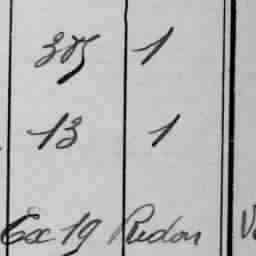 385 1
13 1
Ex 19 Redon